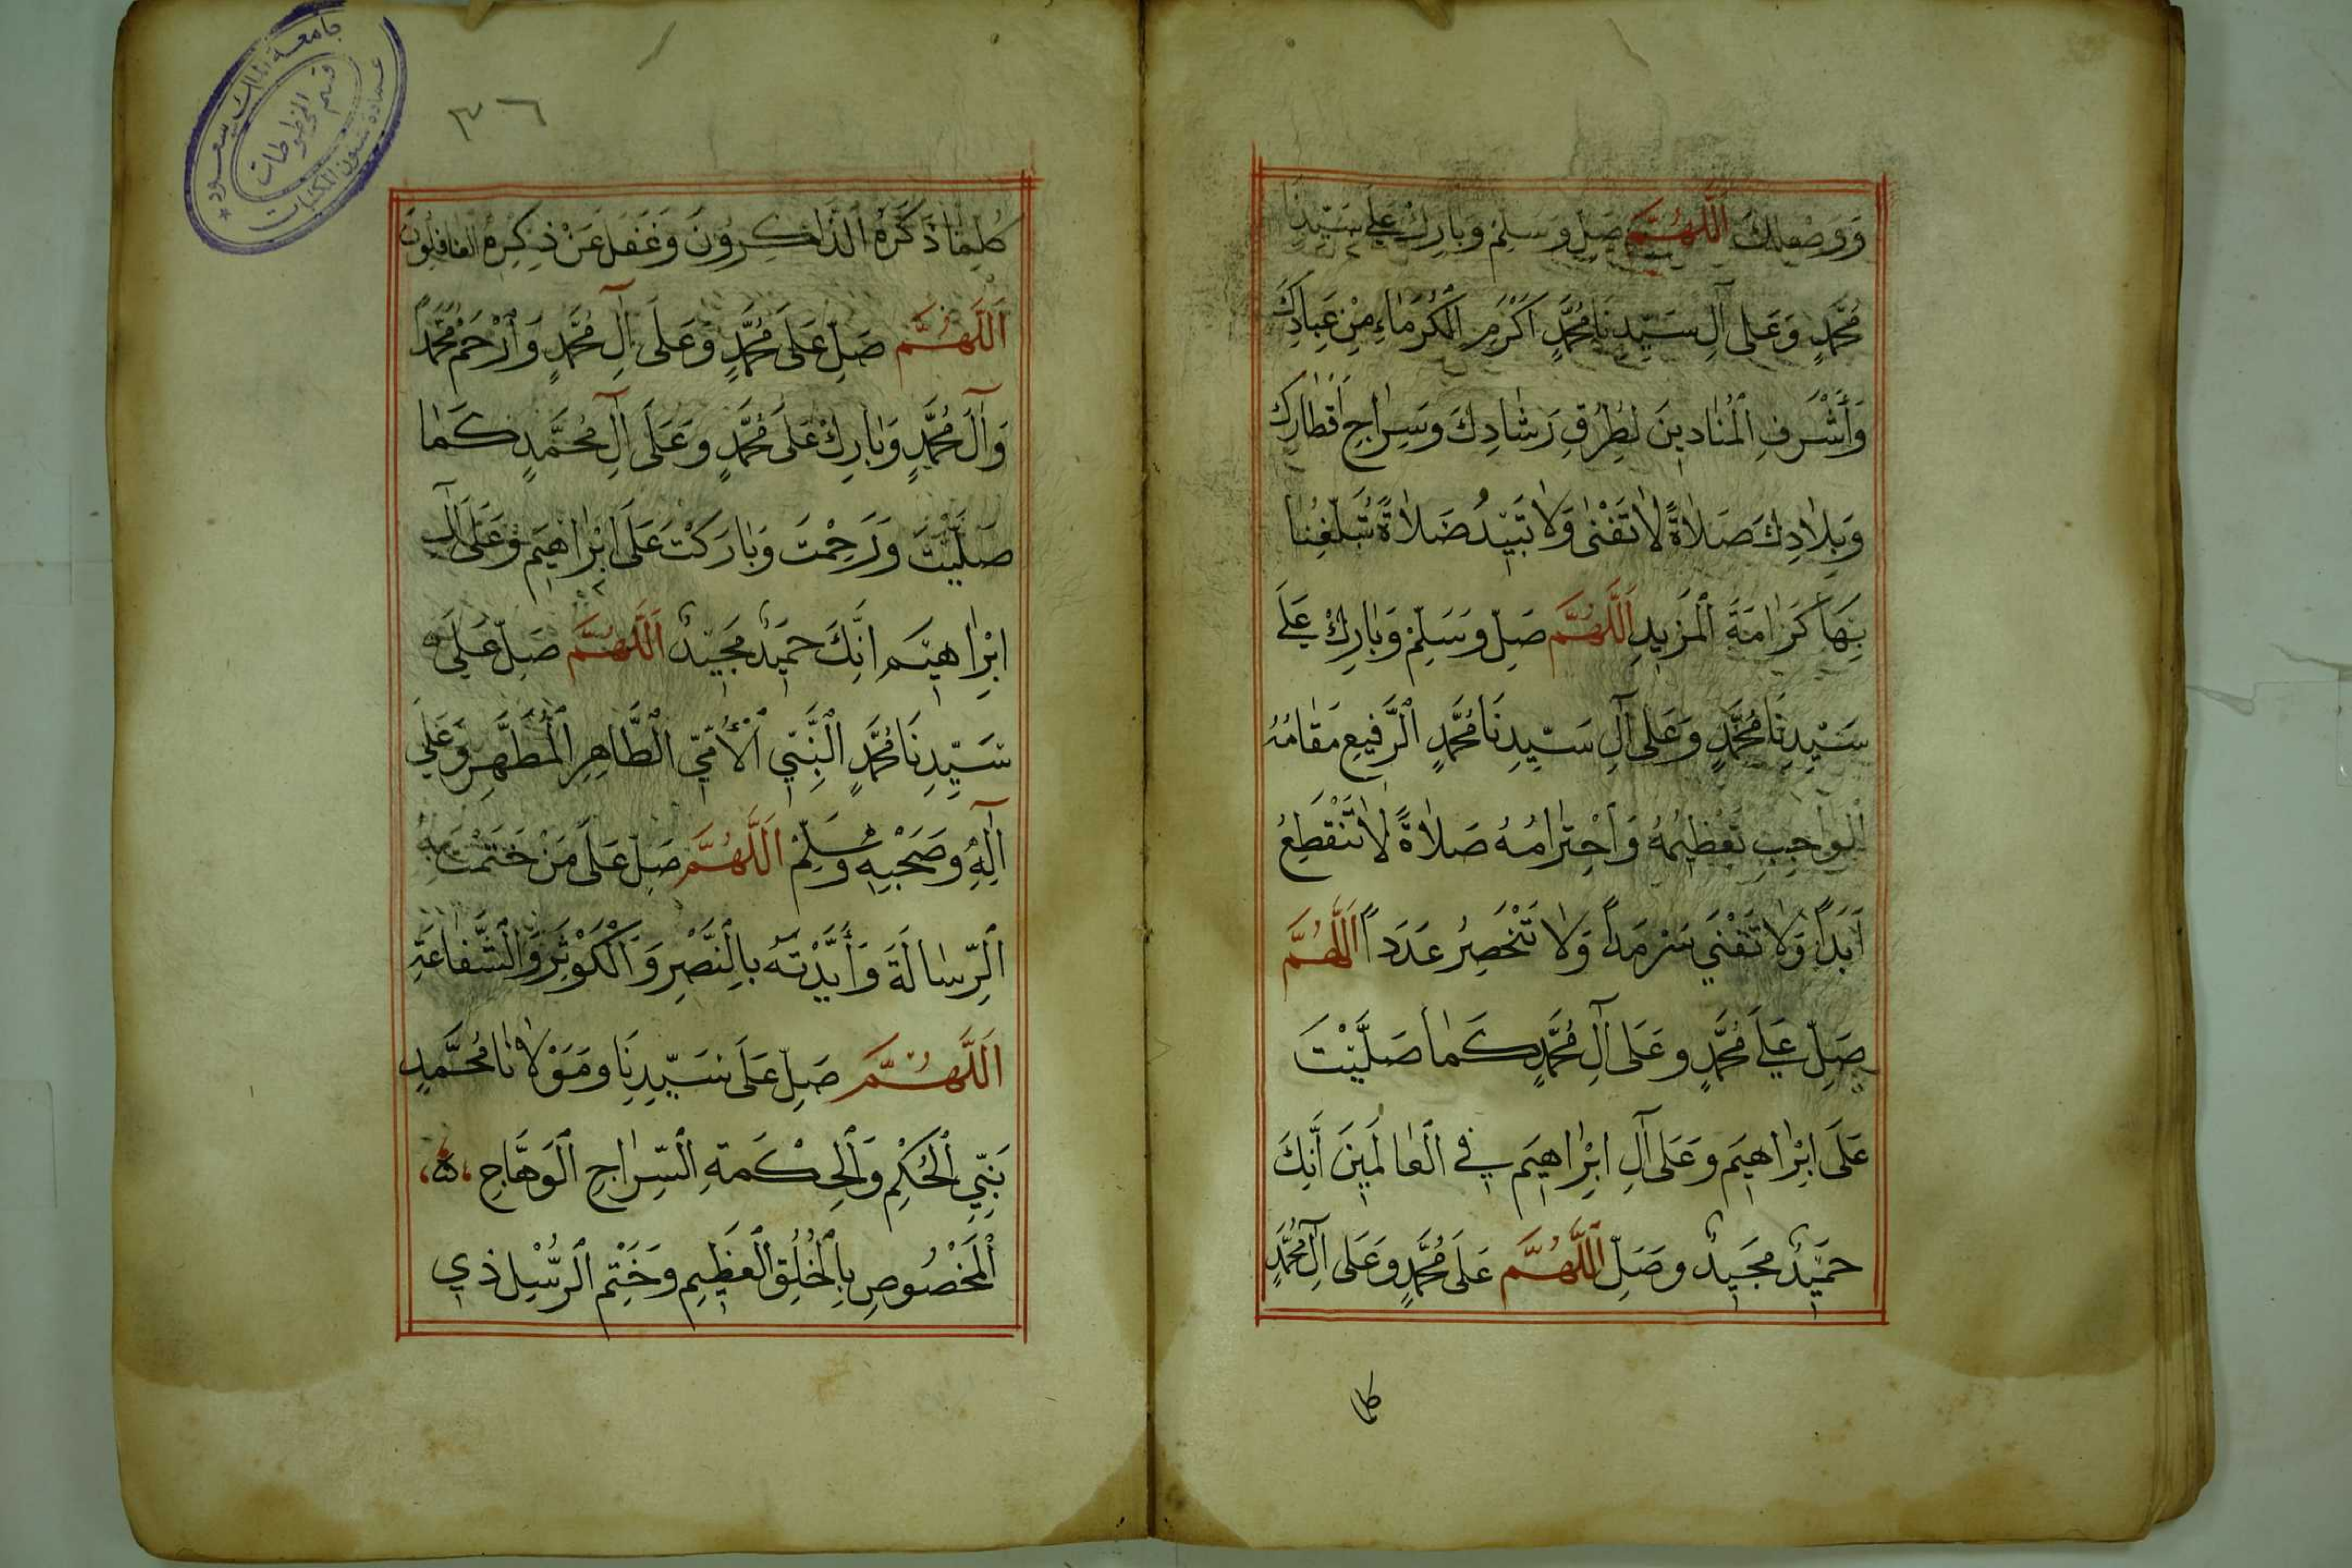 وَوَصْلِكَ اَللّٰهُمَّ صَلِّ وَسَلِّمْ وَبَارِكْ عَلَى سَيِّدِنَا
مُحَمَّدٍ وَعَلٰى آلِ سَيِّدِنَا مُحَمَّدٍ اَكْرَمِ الْكُرَمَاءِ مِنْ عِبَادِكَ
وَأَشْرَفِ الْمُنَادِينَ لِطُرُقِ رَشَادِكَ وَسِرَاجِ اَقْطَارِكَ
وَبِلَادِكَ صَلَاةً لَا تَفْنٰى وَلَا تَبِيْدُ صَلَاةً تُبَلِّغُنَا
بِهَا كَرَامَةَ الْمَزِيدِ اَللّٰهُمَّ صَلِّ وَسَلِّمْ وَبَارِكْ عَلَى
سَيِّدِنَا مُحَمَّدٍ وَعَلٰى آلِ سَيِّدِنَا مُحَمَّدٍ الرَّفِيعِ مَقَامُهُ
الْوَاجِبِ تَعْظِيمُهُ وَاحْتِرَامُهُ صَلَاةً لَا تَنْقَطِعُ
اَبَدًا وَلَا تَفْنَى سَرْمَدًا وَلَا تَنْحَصِرُ عَدَدًا اَللّٰهُمَّ
صَلِّ عَلَى مُحَمَّدٍ وَعَلٰى آلِ مُحَمَّدٍ كَمَا صَلَّيْتَ
عَلَى اِبْرَاهِيمَ وَعَلٰى آلِ اِبْرَاهِيمَ فِي الْعَالَمِينَ اِنَّكَ
حَمِيدٌ مَجِيدٌ وَصَلِّ اللّٰهُمَّ عَلَى مُحَمَّدٍ وَعَلٰى آلِ مُحَمَّدٍ
كلما
٣٦
جامعة الملك سعود
قسم المخطوطات
عمادة شئون المكتبات
كُلَّمَا ذَكَرَهُ الذَّاكِرُونَ وَغَفَلَ عَنْ ذِكْرِهِ الْغَافِلُونَ
اَللّٰهُمَّ صَلِّ عَلَى مُحَمَّدٍ وَعَلَى آلِ مُحَمَّدٍ وَارْحَمْ مُحَمَّدًا
وَآلَ مُحَمَّدٍ وَبَارِكْ عَلَى مُحَمَّدٍ وَعَلَى آلِ مُحَمَّدٍ كَمَا
صَلَّيْتَ وَرَحِمْتَ وَبَارَكْتَ عَلَى اِبْرَاهِيمَ وَعَلَى آلِ
اِبْرَاهِيمَ اِنَّكَ حَمِيدٌ مَجِيدٌ اَللّٰهُمَّ صَلِّ عَلَى
سَيِّدِنَا مُحَمَّدٍ النَّبِيِّ الْأُمِّيِّ الطَّاهِرِ الْمُطَهَّرِ وَعَلَى
آلِهِ وَصَحْبِهِ وَسَلِّمْ اَللّٰهُمَّ صَلِّ عَلَى مَنْ خَتَمْتَ بِهِ
الرِّسَالَةَ وَأَيَّدْتَهُ بِالنَّصْرِ وَالْكَوْثَرِ وَالشَّفَاعَةِ
اَللّٰهُمَّ صَلِّ عَلَى سَيِّدِنَا وَمَوْلَانَا مُحَمَّدٍ
نَبِيِّ الْحُكْمِ وَالْحِكْمَةِ السِّرَاجِ الْوَهَّاجِ
الْمَخْصُوصِ بِالْخُلُقِ الْعَظِيمِ وَخَتْمِ الرُّسُلِ ذِي